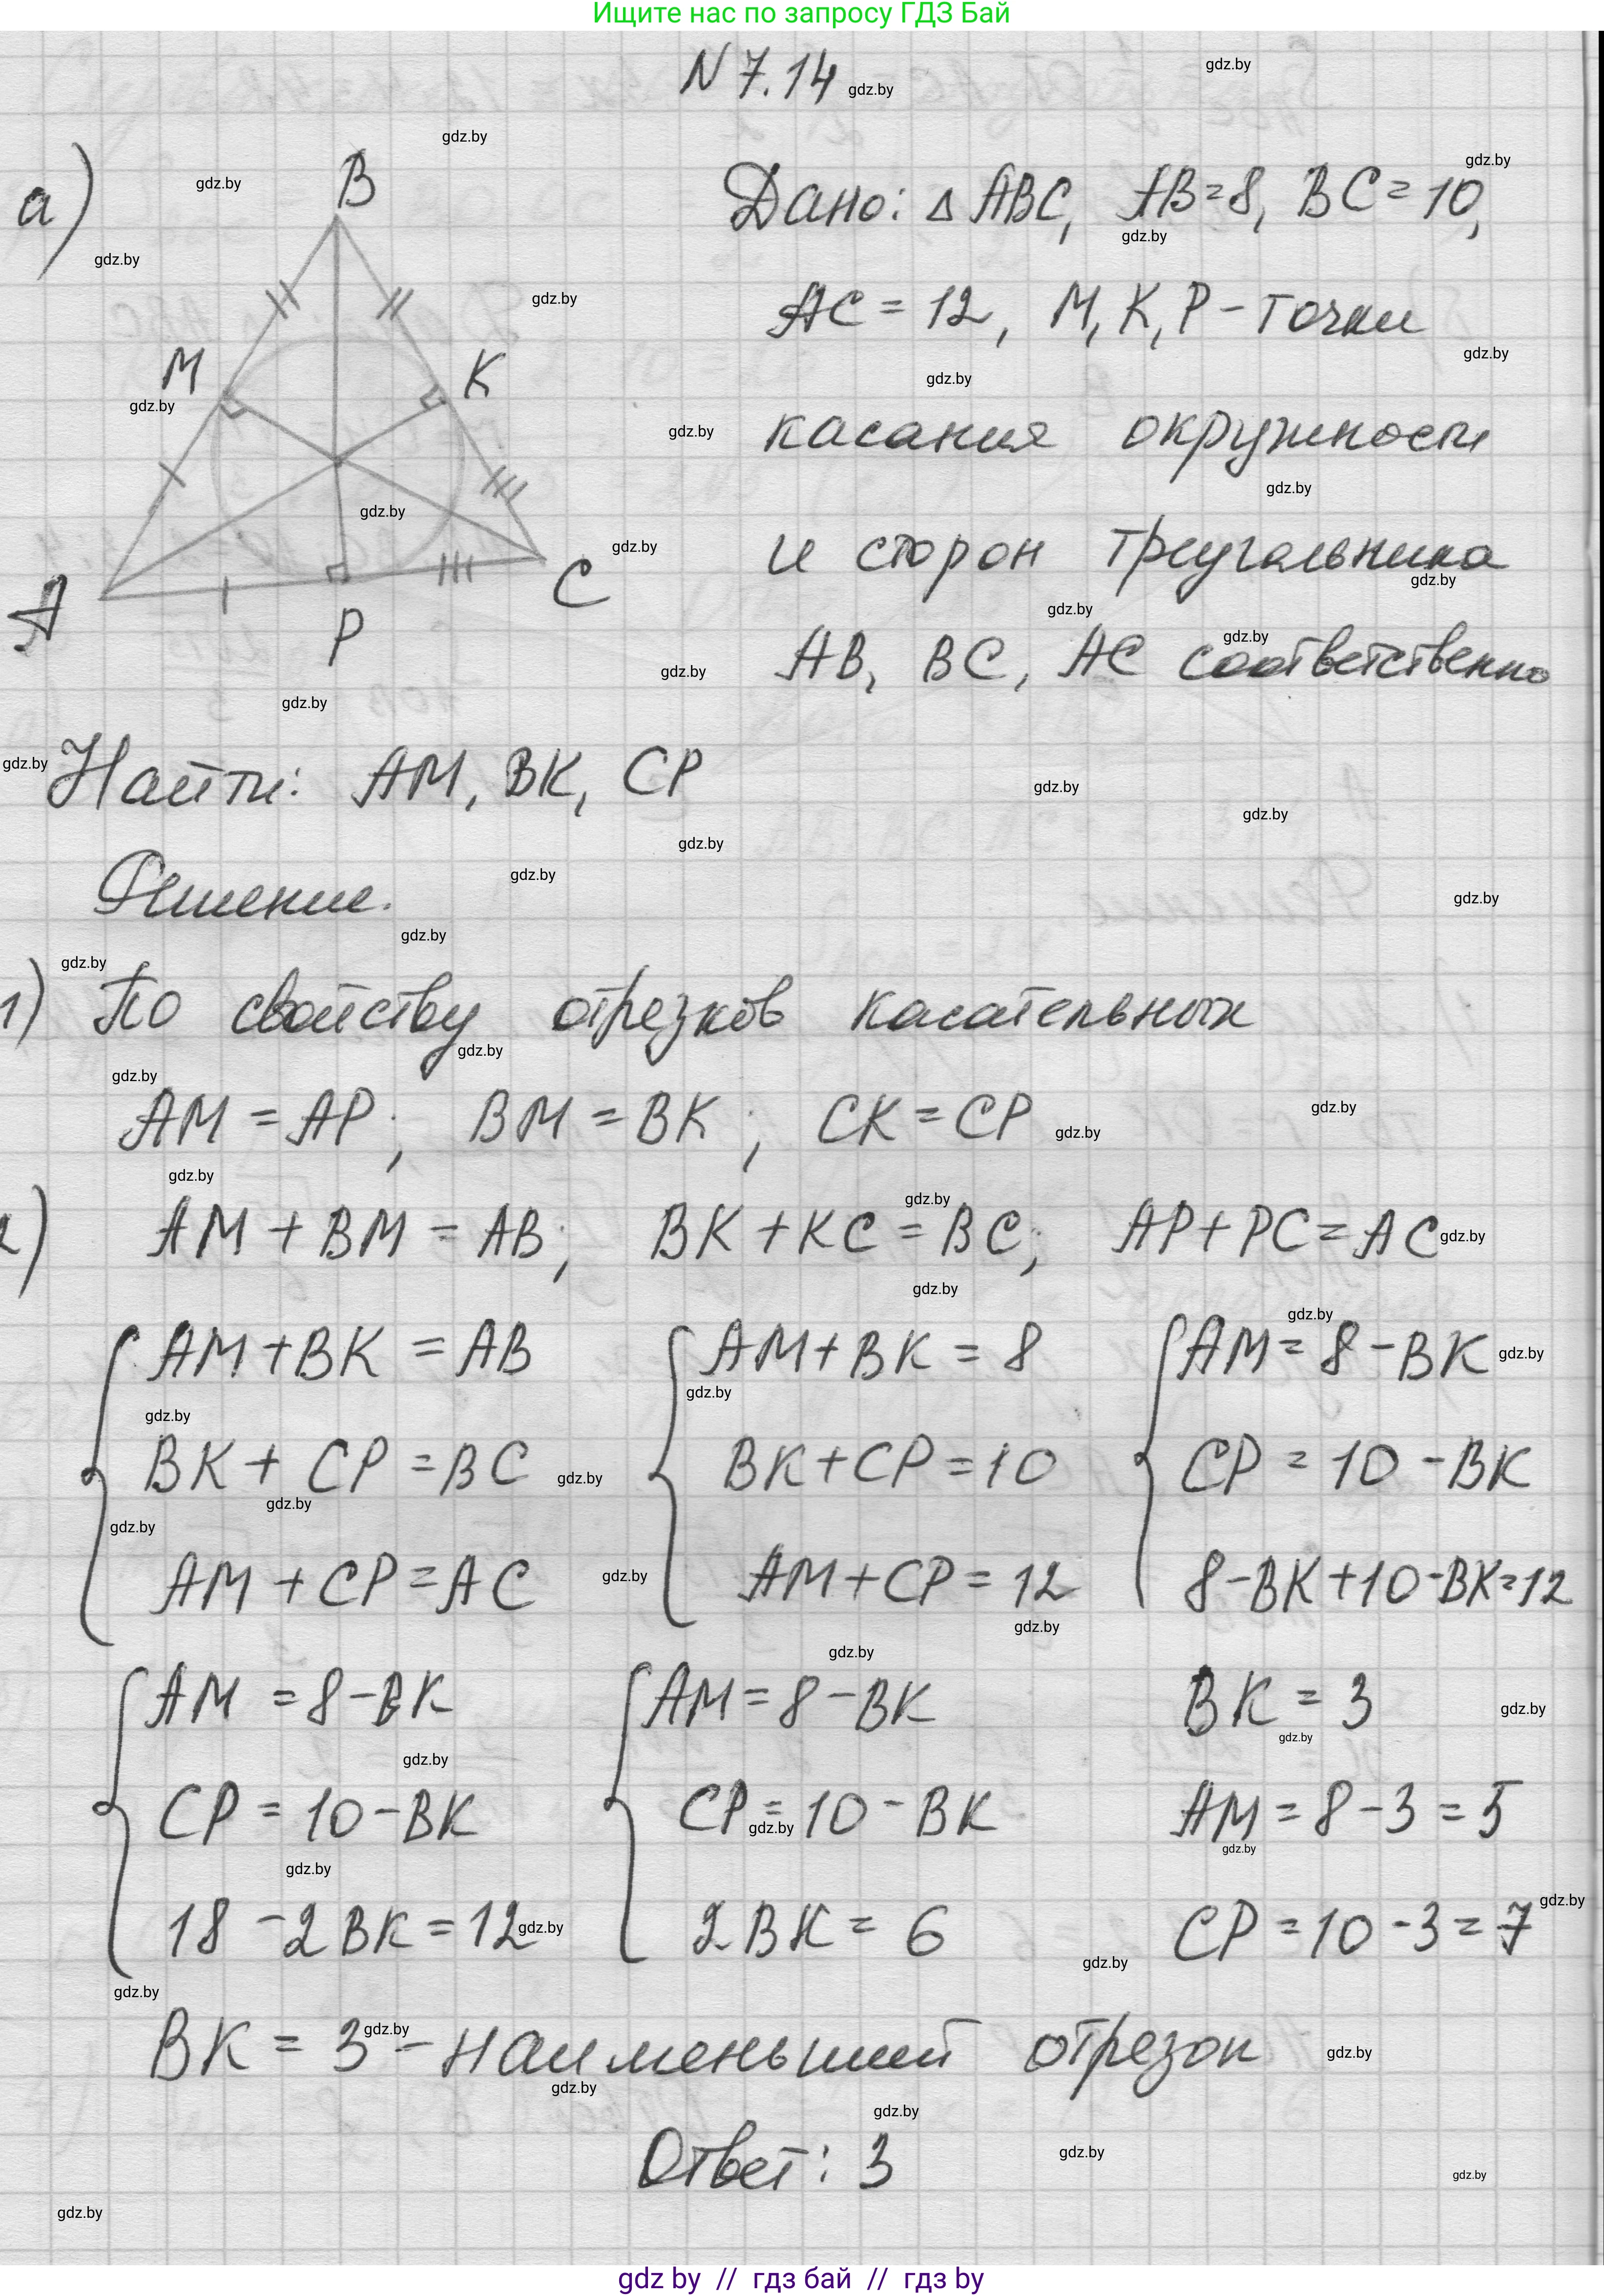 Ищите нас по запросу ГДЗ Бай
N 7.14
а)
B
M
K
A
P
C
Дано: △ ABC, AB=8, BC=10,
AC = 12, M, K, P - точки
касания окружности
и сторон треугольника
AB, BC, AC соответственно
Найти: AM, BK, CP
Решение.
1) По свойству отрезков касательных
AM = AP; BM = BK; CK = CP
2) AM + BM = AB; BK + KC = BC; AP + PC = AC
AM + BK = AB AM + BK = 8 AM = 8 - BK
BK + CP = BC BK + CP = 10 CP = 10 - BK
AM + CP = AC AM + CP = 12 8 - BK + 10 - BK = 12
AM = 8 - BK AM = 8 - BK BK = 3
CP = 10 - BK CP = 10 - BK AM = 8 - 3 = 5
18 - 2BK = 12 2BK = 6 CP = 10 - 3 = 7
BK = 3 - наименьший отрезок
Ответ: 3
gdz by // гдз бай // гдз by